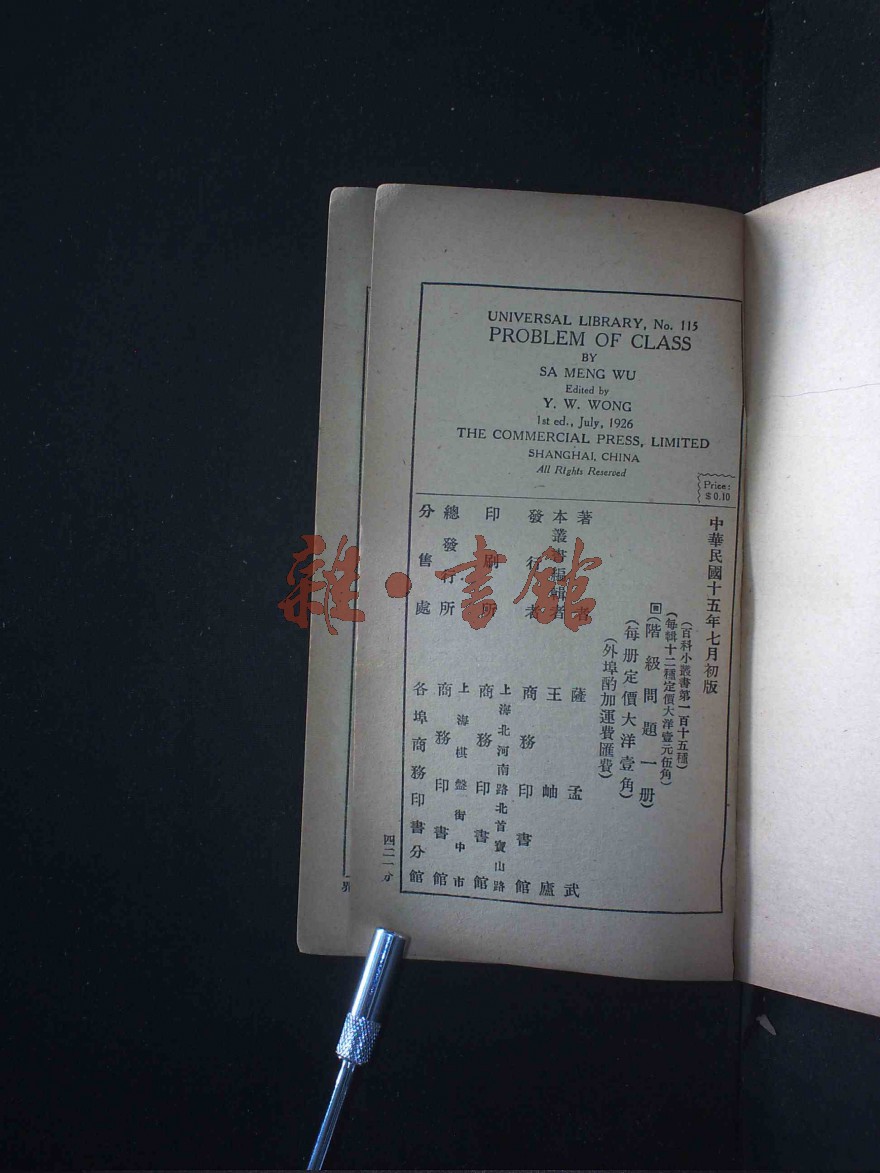 UNIVERSAL LIBRARY, No. 115
PROBLEM OF CLASS
BY
SA MENG WU
Edited by
Y. W. WONG
1st ed., July, 1926
THE COMMERCIAL PRESS, LIMITED
SHANGHAI, CHINA
All Rights Reserved
Price:
$ 0.10
中華民國十五年七月初版
(百科小叢書第一百十五種)
(每輯十二種定價大洋壹元伍角)
(階級問題一册)
(每册定價大洋壹角)
(外埠酌加運費匯費)
著者 薩孟武
本叢書編輯者 王岫廬
發行者 商務印書館
印刷所 上海北河南路北首寶山路
商務印書館
總發行所 上海棋盤街中市
商務印書館
分售處 各埠商務印書分館
雜·書館